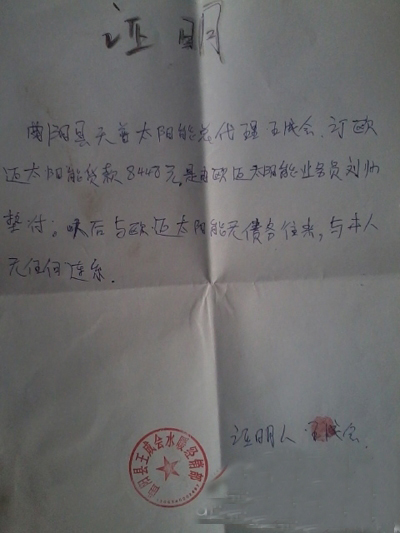 证明
曲阳县天普太阳能总代理王成会,订欧
迈太阳能货款8440元,是由欧迈太阳能业务员刘帅
垫付;以后与欧迈太阳能无债务往来,与本人
无任何连系.
证明人 王成会
曲阳县王成会水暖经销部